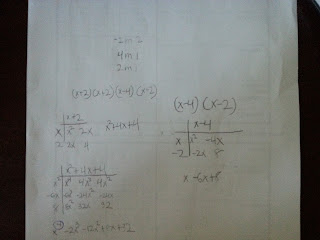 -2 m 2
4 m 1
2 m 1
(x+2)(x+2)(x-4)(x-2)
x+2
x x² 2x
2 2x 4
x²+4x+4
(x-4)(x-2)
x-4
x x² -4x
-2 -2x 8
x -6x+8
x²+4x+4
x² x⁴ 4x³ 4x²
-6x
8 32x 32